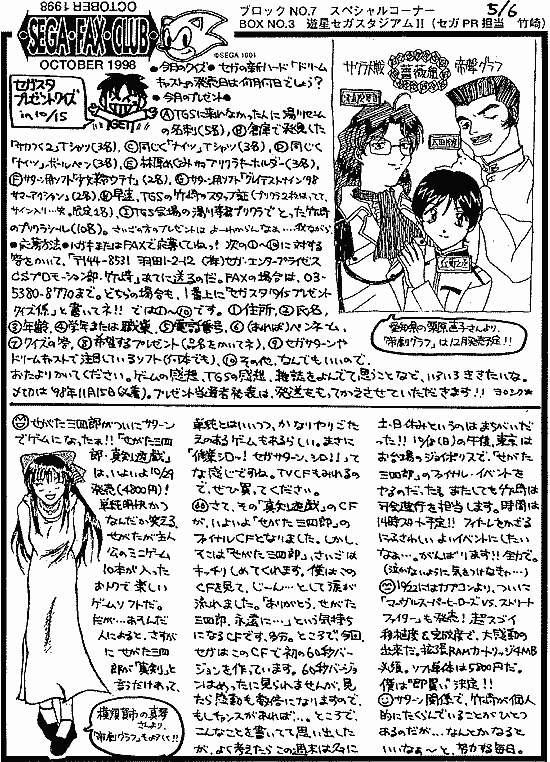 OCTOBER 1998
SEGA・FAX・CLUB
OCTOBER 1998
ブロックNO.7 スペシャルコーナー 5/6
BOX NO.3 遊星セガスタジアムⅡ(セガPR担当 竹崎)
©SEGA
セガスタ
プレゼントクイズ
in 10/15
GET!
●今日のクイズ● セガの新ハード「ドリーム
キャストの発売日は何月何日でしょう?
●今日のプレゼント●
Ⓐ TGSに来れなかった人に湯川専務
の名刺(5名)、Ⓑ倉庫で発見した
「サカつく2」Tシャツ(3名)、Ⓒ同じく「ナイツ」Tシャツ(3名)、Ⓓ同じく
「ナイツ」ボールペン(3名)、Ⓔ林原めぐみ
キーホルダー(3名)、
Ⓕサターン用ソフト
(2名)、Ⓖサターン用ソフト「グレイテストナイン'98
サマーアクション」(2名)、Ⓗ早速、TGSの竹崎のスタッフ証
サイン入り…笑。限定1名)、Ⓘ TGS会場の湯川専務プリクラでとった竹崎
のプリクラシール(10名)。
●応募方法●ハガキまたはFAXで応募してねっ! 次の①〜⑩に対する
答をかいて、「〒144-8531 羽田1-2-12 (株)セガ・エンタープライゼス
CSプロモーション部・竹崎」あてに送るのだ。FAXの場合は、03-
5380-8770まで。どちらの場合も、1番上に「セガスタ10/15プレゼント
クイズ係」と書いてネ!! では①〜⑩です。①住所、②氏名、
③年齢、④学年または職業、⑤電話番号、⑥(あれば)ペンネーム、
⑦クイズの答、⑧希望するプレゼント(品名をかいてネ)、⑨セガサターンや
ドリームキャストで注目しているソフト(何本でも)、⑩その他、なんでもいいので、
おたよりかいてください。ゲームの感想、TGSの感想、雑誌をよんでて思うことなど、いろいろききたいな。
〆切は'98年11月15日(必着)。プレゼント当選者発表は、発送をもってかえさせていただきます!! ヨロシク★
サクラ大戦 薔薇組 帝撃グラフ
愛知県の栗原直子さんより、
「帝劇グラフ」は12月発売予定!!
せがた三四郎がついにサターン
でゲームになったョ!! 「せがた三四
郎・真剣遊戯」
は、いよいよ10/29
発売(4800円)!
単純明快かつ
なんだか笑える、
せがたが主人
公のミニゲーム
10本が入った
おトクで楽しい
ゲームソフトだ。
だが…あそんだ
人によると、さすが
にせがた三四
郎が「真剣」と
言うだけあって、
横須賀市の真琴
さんより、
「帝劇グラフ」もよろしく!!
単純とはいいつつ、かなりやりごた
えのあるゲームもあるらしい。まさに
「修業シロ〜! セガサターン、シロ!」って
な感じですね。TVCFもみれるの
で、ぜひ買ってください。
さて、その「真剣遊戯」のCF
が、いよいよ「せがた三四郎」のフ
ァイナルCFとなりました。しかし、
すごは「せがた三四郎」、さいごは
キッチリしめてくれます。僕はこの
CFを見て、じーん…として涙が
流れました。「ありがとう、せがた
三四郎、永遠に…」という気持ち
になるCFです、多分。ところで、今回、
セガはこのCFで初の60秒バー
ジョンを作っています。60秒バージョ
ンはめったに見られませんが、見
たら感動も数倍になりますので、
もしチャンスがあれば…。ところで、
こんなことを書いてて思い出した
が、よく考えたらこの週末は久々に
土・日休みというのはまちがいだ
った!! 10/18(日)の午後、東京は
お台場のジョイポリスで、「せがた
三四郎」のファイナル・イベントを
やるのだった。またしても竹崎は
司会進行を担当します。時間は
14時スタート予定!! ファイナルをかざる
にふさわしい、よいイベントにしたい
なぁ…。がんばります!! 全力で。
(泣かないように気をつけなきゃ…)
10/22にはカプコンより、ついに
「マーヴルスーパーヒーローズVS.ストリート
ファイター」も発売! 超スゴイ
移植度&完成度で、大感動の
出来だ。拡張RAMカートリッジ4MB
必須、ソフト単体は5800円だ。
僕は“即買い”決定!!
サターン関係で、竹崎が個人
的にたくらんでいることがひとつ
あるのだが…なんとかなると
いいなぁ〜と、努力する毎日。